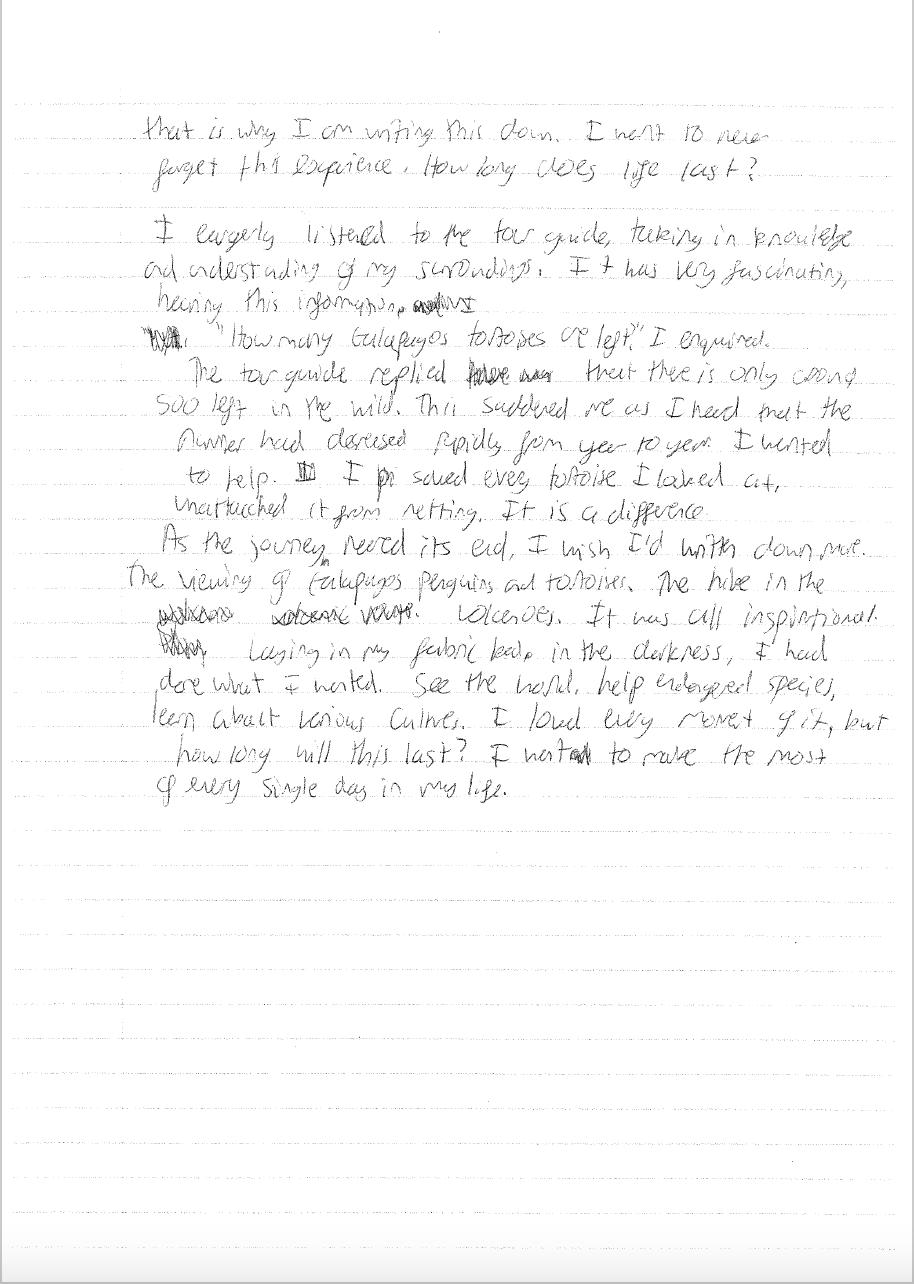 that is why I am writing this down. I want to never
forget this experience. How long does life last?
I eargerly listened to the tour guide, taking in knowledge
and understanding of my surroundings. It was very fascinating,
hearing this information.
"How many Galapagos tortoises are left?" I enquired.
The tour guide replied that there is only around
500 left in the wild. This saddened me as I heard that the
number had decreased rapidly from year to year. I wanted
to help. I saved every tortoise I looked at,
unattatched it from netting. It is a difference
As the journey neared its end, I wish I'd written down more.
The viewing of Galapagos Penguins and tortoises. The hike in the
volcanoes. It was all inspirtional.
Laying in my fabric bed, in the darkness, I had
done what I wanted. See the world, help endangered species,
learn about various cultures. I loved every moment of it, but
how long will this last? I want to make the most
of every single day in my life.